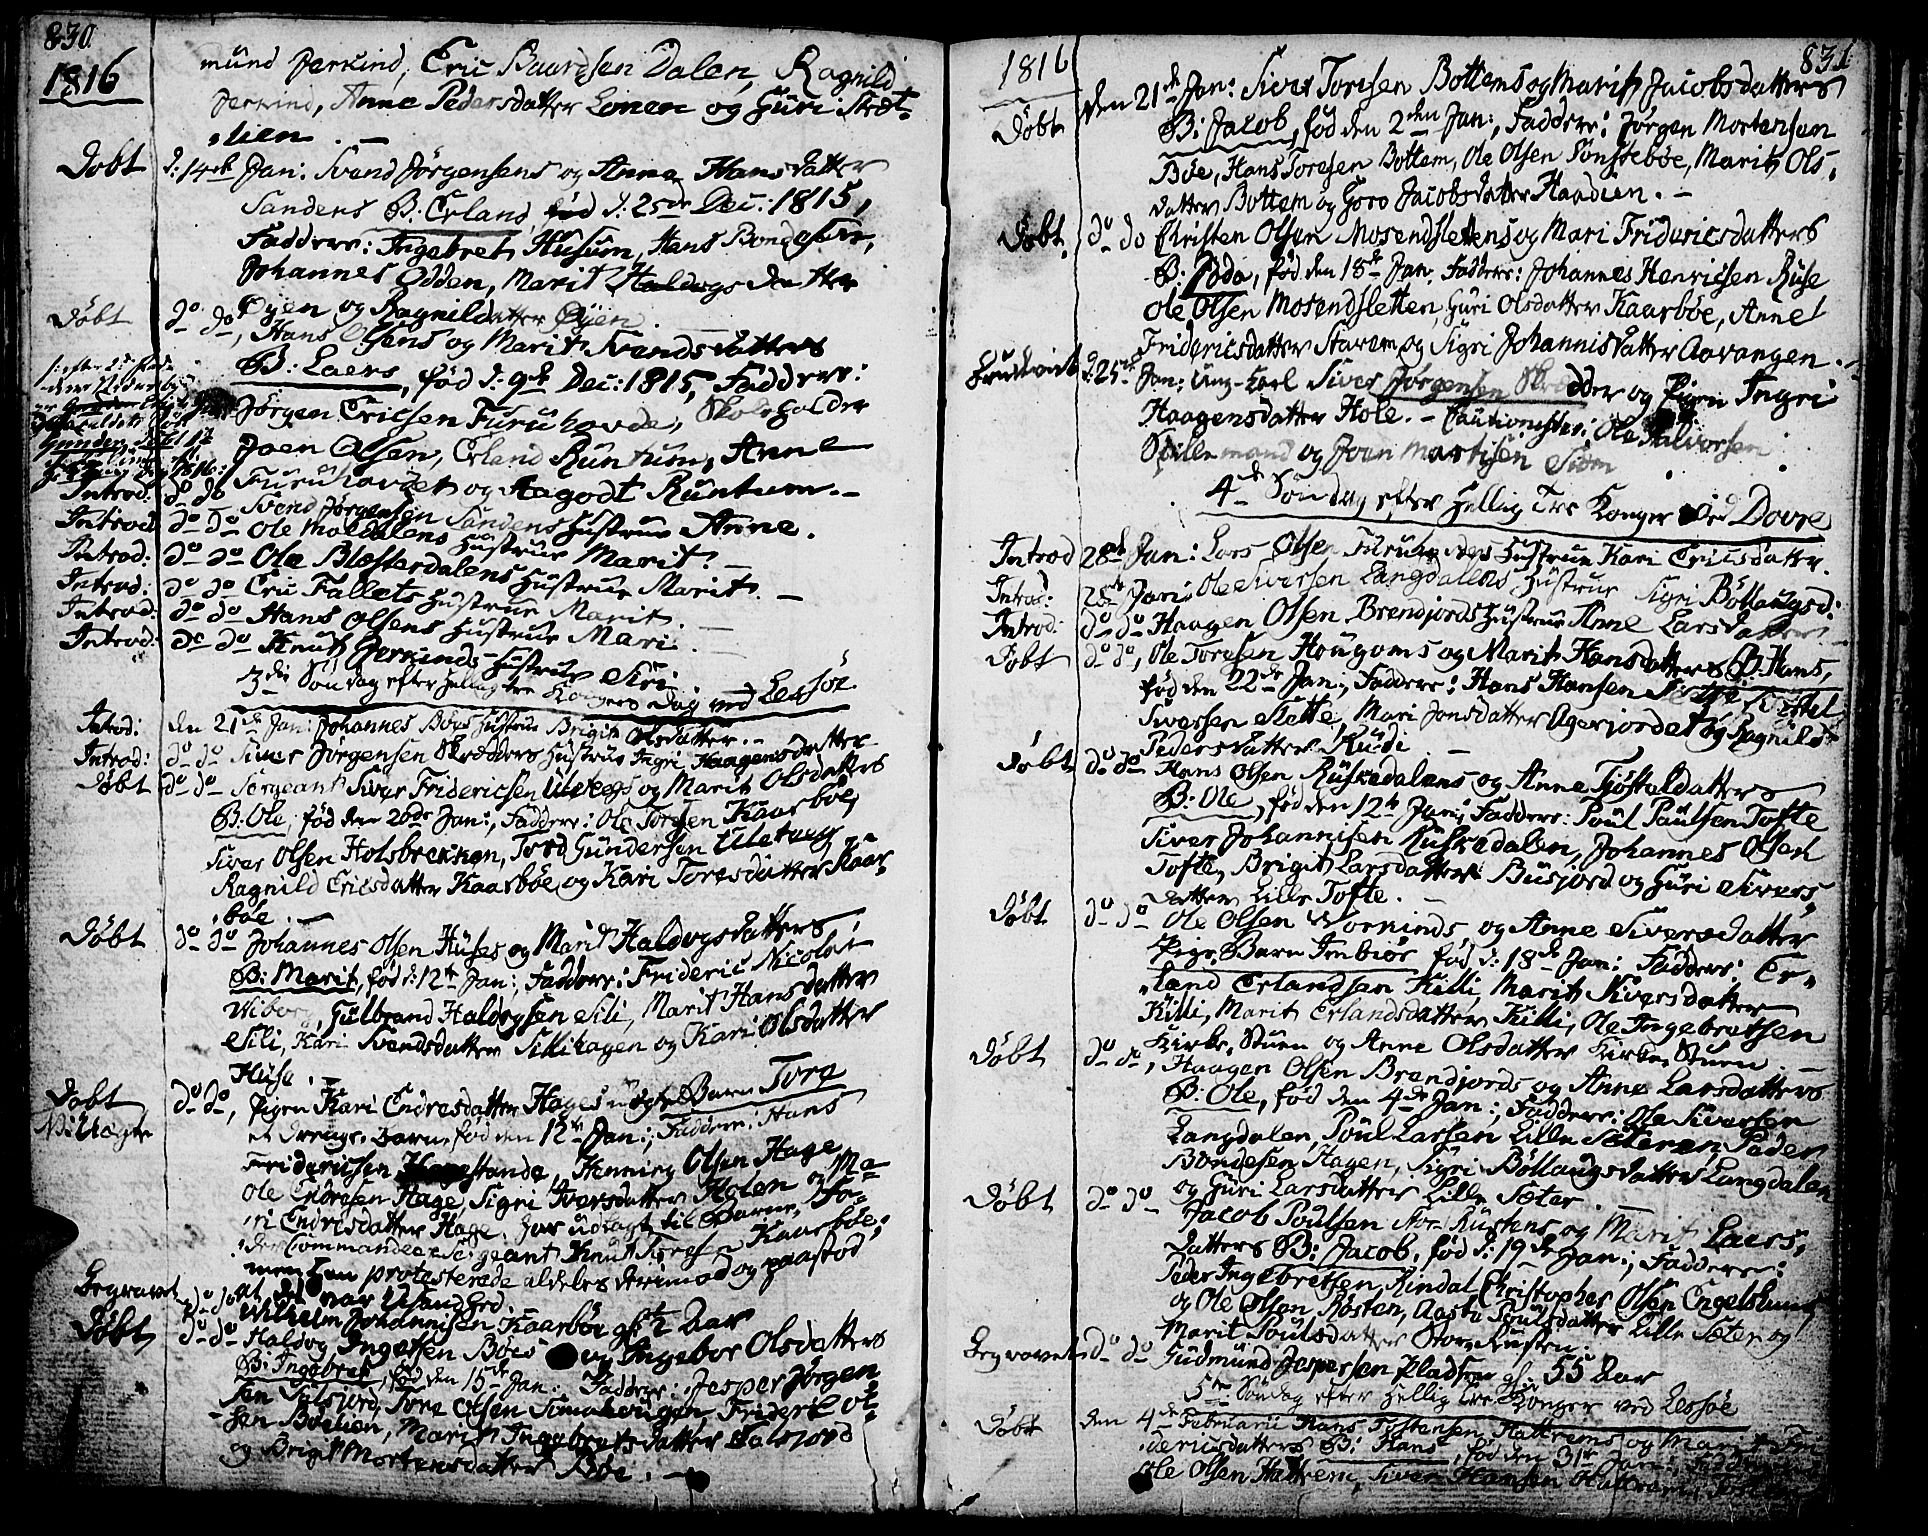 830
1816
mund Jerkind, Eric Baardsen Dalen, Ragnild
Jerkind, Anne Pedersdatter Lonen og Guri
lien. —
Døbt d: 14de Jan: Svend Jørgensens og Anne Hansdatter
Sandens B: Erland, fød d: 25de Dec: 1815,
Faddere: Ingebret Husum, Hans Bondesen,
Johannes Odden, Marit Haldogsdatter
Øyen og Ragnild datter Øyen.
Døbt do do, Hans Olsens og Marit Svendsdatters
B: Laers, fød d: 9de Dec: 1815, Faddere:
Jørgen Ericsen Furuhovde, Skoleholder
Joen Olsen, Erland Runtum, Anne
Furuhovdet og Aagodt Runtum. —
Introd: do do Svend Jørgensen Sandens Hustrue Anne.
Introd. do do Ole Moldalens Hustrue Marit. —
Introd: do do Ole Blesterdalens Hustrue Marit. —
Introd: do do Eric Fallets Hustrue Marit.
Introd: do do Hans Olsens Hustrue Mari.
Introd: do do Knut Gerkinds Hustrue Siri
3die Søndag efter Hellig tre Kongers Dag ved Lessøe
Introd: den 21de Jan: Johannes Bøes Hustrue Brigit Olsdatter. —
Introd: do do Siver Jørgensen Skrædders Hustrue Ingri Haagensdatter
Døbt do do Sergeant Siver Fridericsen Uletegs og Marit Olsdatters
B: Ole, fød den 20de Jan:, Faddere: Ole Toresen Kaarbøe,
Siver Olsen Holsbrekken, Tord Gundersen Uleteeg
Ragnild Ericsdatter Kaarbøe, og Kari Toresdatter Kaar-
bøe. —
Døbt do do Johannes Olsen Huses og Marit Haldogsdatters
B: Marit, fød d: 12te Jan:, Faddere: Frideric Nicolai
Wiborg, Gulbrand Haldogsen Sili, Marit Hansdatter
Sili, Kari Svendsdatter Sillihagen og Kari Olsdatter
Huse. —
Døbt do do, Pigen Kari Endresdatter Hages uægte Barn Tore
NB: Uægte et Drenge-Barn, fød den 12te Jan:, Faddere: Hans
Fridericsen Hagestande, Henning Olsen Hage,
Ole Endresen Hage, Sigri Iversdatter Holen og Ma-
ri Endresdatter Hage. Har udlagt til Barne-Fa-
der Commandeer Sergeant Knut Toresen Kaarbøe,
men han protesterede aldeles derimod og paastod
at det var Usandhed.
Begravet do do Wilhelm Johannisen Kaarbøe gl: ½ Aar
Døbt do do Haldog Ingebretsen Bøes og Ingebor Olsdatters
B: Ingebret, fød den 15de Jan:, Faddere: Jesper Jørgen-
sen Talsjord, Tore Olsen Simahougen, Frideric Ol-
sen Bøelien, Marit Ingebretsdatter Talsjord
og Brigit Mortensdatter Bøe. —
1816
831
Døbt den 21de Jan: Siver Toresen Bottems og Marit Jacobsdatters
B: Jacob, fød den 2den Jan:, Faddere: Jørgen Mortensen
Bøe, Hans Toresen Bottem, Ole Olsen Sønstebøe, Marit Ols-
datter Bottem og Goro Jacobsdatter Haadien. —
Døbt. do do Christen Olsen Mosendslettens og Mari Fridericsdatters
B: Poda, fød den 18de Jan. Faddere: Johannes Henricsen Ruse
Ole Olsen Mosendsletten, Guri Olsdatter Kaarbøe, Anne
Fridericsdatter Starem og Sigri Johannisdatter Aavangen.
Brudeviet d: 25de Jan: Ung-Karl Siver Jørgensen Skrædder og Pigen Ingri
Haagensdatter Hole. — Cautionister: Ole Halvorsen
Spillemand og Joen Mortisen
4de Søndag efter Hellig Tre Konger ved Dovre
Introd 28de Jan: Lars Olsen Furuhovdes Hustrue Kari Ericsdatter.
Introd: 28de Jan: Ole Siversen Langdalens Hustrue Sigri Böllaugsd:
Introd: do do Haagen Olsen Brendjords Hustrue Anne Larsdatter
Døbt do do, Ole Toresen Hougoms og Marit Hansdatters B: Hans,
fød den 22de Jan:, Faddere: Hans Hansen Slette Kittel
Siversen Slette, Mari Jonsdatter Agerjordet og Ragnild
Pedersdatter Rudi. —
Døbt do do Hans Olsen Ruskedalens og Anne Tjøstoldatters
B: Ole, fød den 12te Jan:, Faddere: Poul Paulsen Tofte
Siver Johannisen Ruskedalen, Johannes Olsen
Tofte, Brigit Larsdatter Busjord og Guri Sivers-
datter Lille Tofte. —
Døbt do do Ole Olsen Vorninds og Anne Siversdatter
Pige Barn Imbiør fød d: 18de Jan: Faddere: Er-
land Erlandsen Killi, Marit Siversdatter
Killi, Marit Erlandsdatter Killi, Ole Ingebretsen
Kirke-Stuen og Anne Olsdatter Kirke-Stuen. —
Døbt do do, Haagen Olsen Brendjords og Anne Larsdatters
B: Ole, fød den 4de Jan:, Faddere: Ole Siversen
Langdalen, Poul Larsen Lille Sæteren Peder
Bondesen Hagen, Sigri Böllaugsdatter Langdalen
og Guri Larsdatter Lille Sæter.
Døbt do do Jacob Poulsen Stor-Rustens og Marit Laers-
datters B: Jacob, fød d: 19de Jan:, Faddere:
Peder Ingebretsen Rindal, Christopher Olsen Engelshuus
og Ole Olsen Røsten, Aaste Poulsdatter Lille Sæter og
Marit Poulsdatter Stor-Rusten.
Begravet do do Gudmund Jespersen Pladsen gl: 55 Aar
5te Søndag efter Hellig Tre Konger ved Lessøe
Døbt den 4de Februarii Hans Tostensen Hattrems og Marit Fri-
dericsdatters B: Hans, fød den 31te Jan:, Faddere:
Ole Olsen Hattrem, Siver Hansen Hattrem,